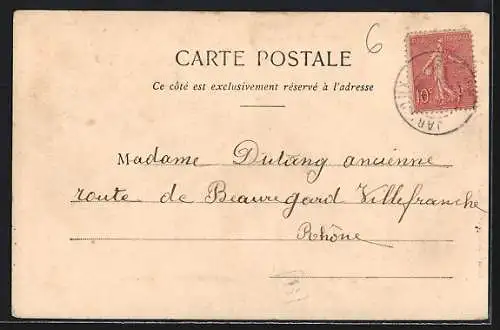 6
CARTE POSTALE
Ce côté est exclusivement réservé à l'adresse
10c
Madame Dulang ancienne
route de Beauregard Villefranche
Rhône